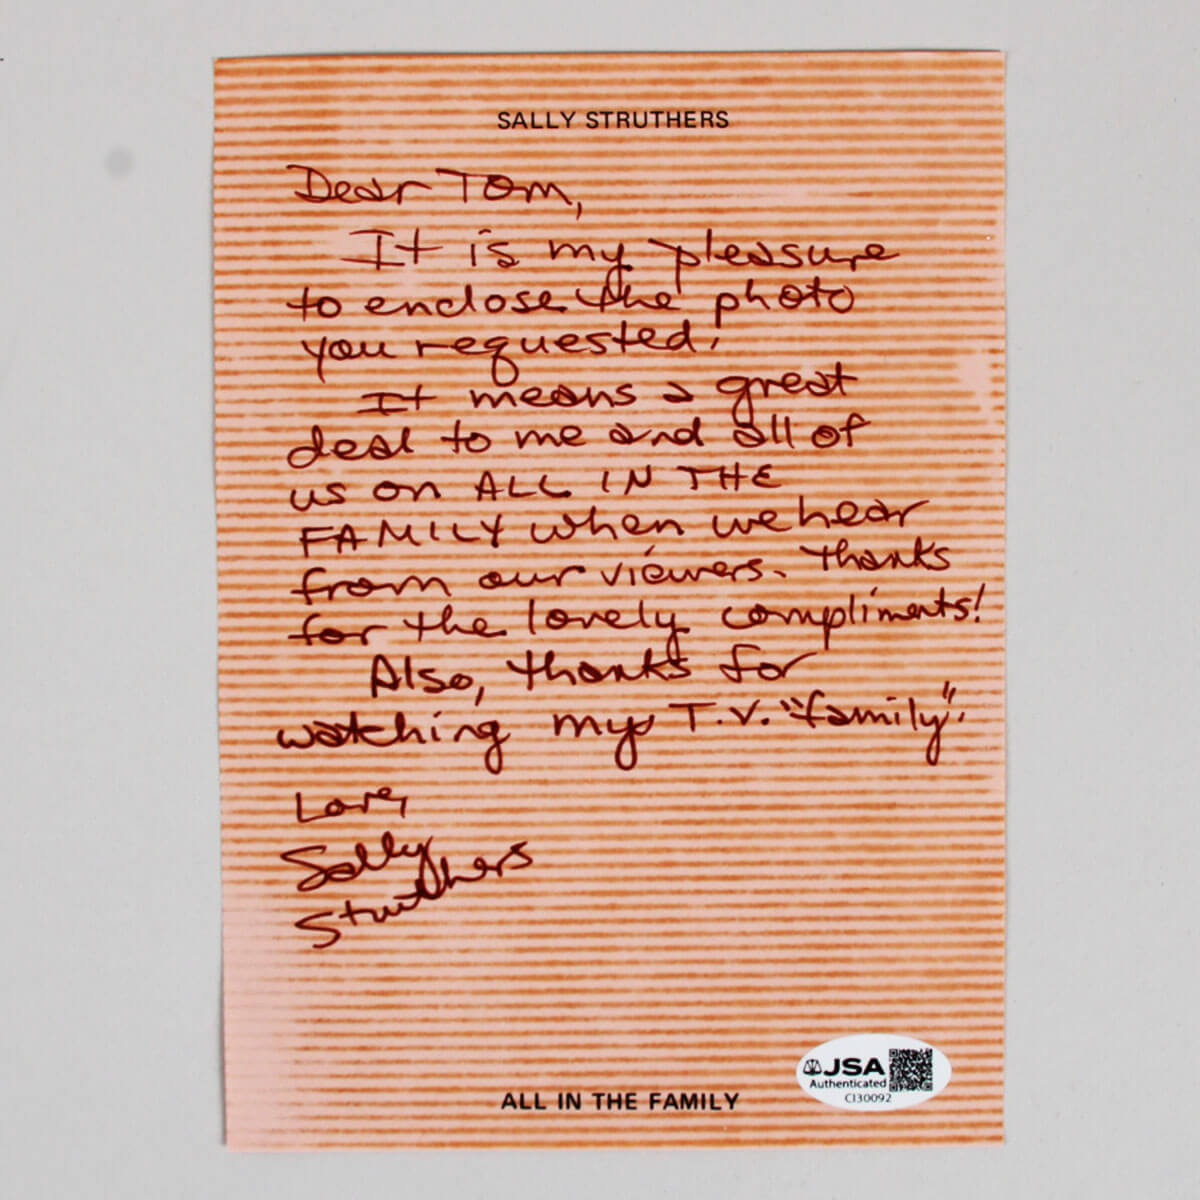 SALLY STRUTHERS
Dear Tom,
It is my pleasure
to enclose the photo
you requested!
It means a great
deal to me and all of
us on ALL IN THE
FAMILY when we hear
from our viewers. Thanks
for the lovely compliments!
Also, thanks for
watching my T.V. "family".
Love,
Sally
Struthers
JSA
Authenticated
CI30092
ALL IN THE FAMILY